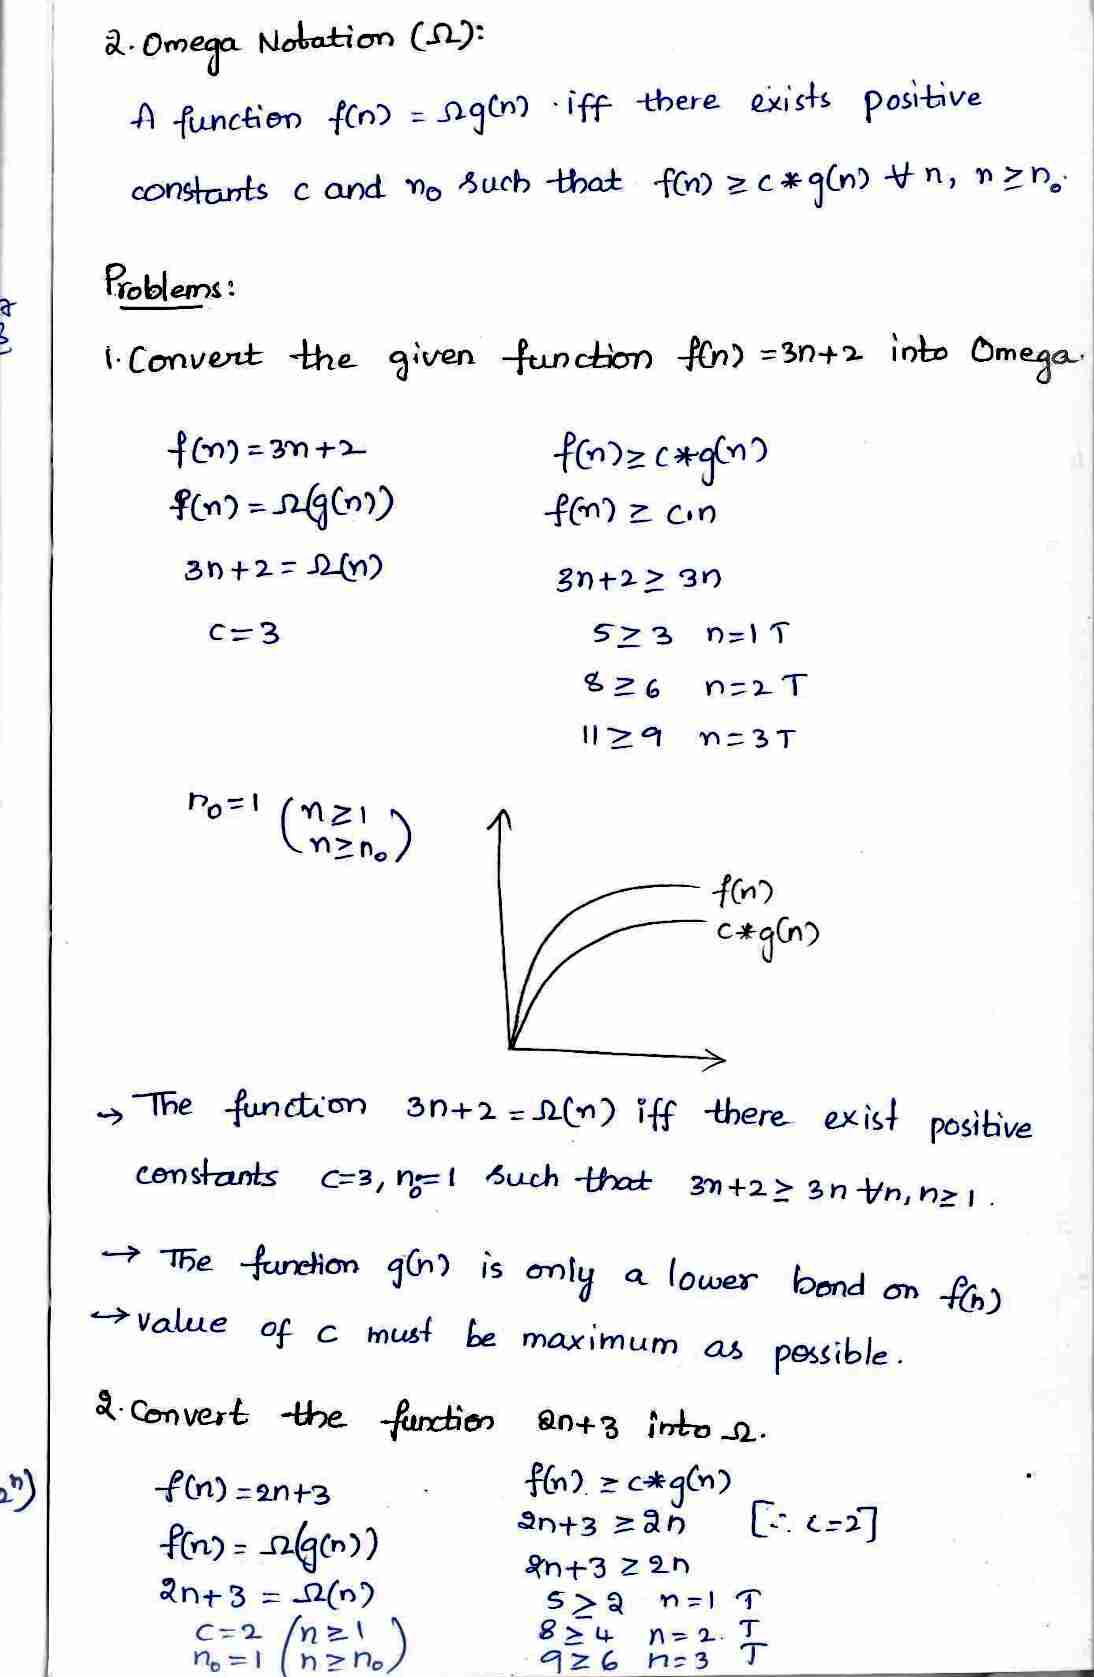 2. Omega Notation (Ω):
A function f(n) = Ωg(n) iff there exists positive
constants c and n₀ such that f(n) ≥ c*g(n) ∀ n, n ≥ n₀.
Problems:
1. Convert the given function f(n) = 3n+2 into Omega.
f(n) = 3n+2
f(n) = Ω(g(n))
3n+2 = Ω(n)
c=3
f(n) ≥ c*g(n)
f(n) ≥ c.n
3n+2 ≥ 3n
5 ≥ 3 n=1 T
8 ≥ 6 n=2 T
11 ≥ 9 n=3 T
n₀=1 (n ≥ 1
n ≥ n₀)
f(n)
c*g(n)
→ The function 3n+2 = Ω(n) iff there exist positive
constants c=3, n₀=1 such that 3n+2 ≥ 3n ∀n, n≥1.
→ The function g(n) is only a lower bond on f(n)
→ value of c must be maximum as possible.
2. Convert the function 2n+3 into Ω.
f(n) = 2n+3
f(n) = Ω(g(n))
2n+3 = Ω(n)
c=2 (n ≥ 1
n₀=1 n ≥ n₀)
f(n) ≥ c*g(n)
2n+3 ≥ 2n [∴ c=2]
2n+3 ≥ 2n
5 ≥ 2 n=1 T
8 ≥ 4 n=2. T
9 ≥ 6 n=3 T